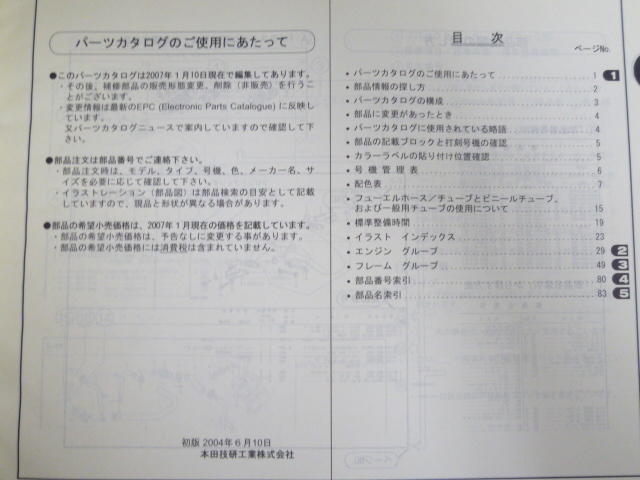 パーツカタログのご使用にあたって
●このパーツカタログは2007年1月10日現在で編集してあります。
・その後、補修部品の販売形態変更、削除（非販売）を行うこ
とがございます。
・変更情報は最新のEPC (Electronic Parts Catalogue) に反映
しています。
又パーツカタログニュースで案内していますので確認して下
さい。
●部品注文は部品番号でご連絡下さい。
・部品注文時は、モデル、タイプ、号機、色、メーカー名、サ
イズを必要に応じて確認して下さい。
・イラストレーション（部品図）は部品検索の目安として記載
していますので、現品と形状が異なる場合があります。
●部品の希望小売価格は、2007年1月現在の価格を記載しています。
・部品の希望小売価格は、予告なしに変更する事があります。
・部品の希望小売価格には消費税は含まれていません。
初版 2004年6月10日
本田技研工業株式会社
目 次
ページNo.
・パーツカタログのご使用にあたって 1 1
・部品情報の探し方 2
・パーツカタログの構成 3
・部品に変更があったとき 4
・パーツカタログに使用されている略語 4
・部品の記載ブロックと打刻号機の確認 5
・カラーラベルの貼り付け位置確認 5
・号機管理表 6
・配色表 7
・フューエルホース／チューブとビニールチューブ、
および一般用チューブの使用について 15
・標準整備時間 19
・イラスト インデックス 23
・エンジン グループ 29 2
・フレーム グループ 49 3
・部品番号索引 80 4
・部品名索引 83 5